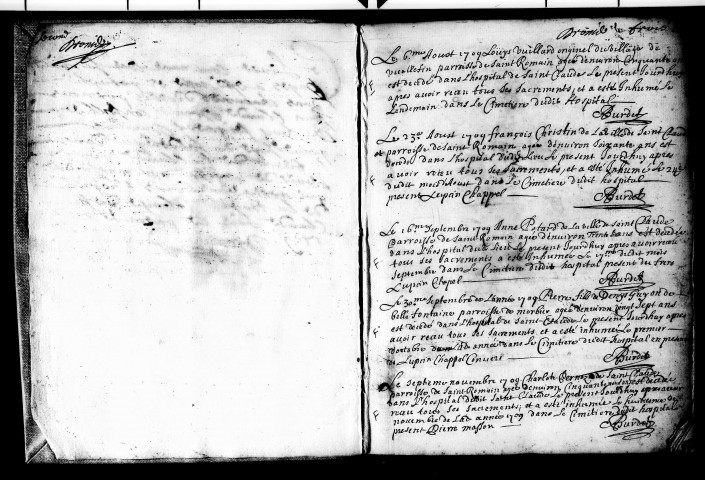 Second
Le 6.me Aoust 1709 Louys Vuillard originel du village de
parroisse de Saint Romain agé denviron Cinquante
est decedé dans L'hospital de Saint Claude Le present Jourdhuy
apres avoir receu tous ses Sacrements, et a esté Inhumé Le
Lendemain dans Le Cimetiere dudit Hospital
Burdet
Le 23e Aoust 1709 françois Christin de La ville de Saint Claude
et parroisse de Saint Romain agé denviron Soixante ans est
decedé dans L'hospital dudit Lieu Le present Jourdhuy apres
avoir receu tous ses Sacrements, et a esté Inhumé Le 24e
dudit mois d'Aoust dans Le Cimetiere dudit hospital
present Lupicin Chappel
Burdet
Le 16me Septembre 1709 Anne Potard de La ville de Saint Claude
Parroisse de Saint Romain agée denviron trente ans est decedée
dans L'hospital dudit Lieu Le present Jourdhuy apres avoir receu
tous ses Sacrements a esté Inhumée Le 17me dudit mois
Septembre dans Le Cimetiere dudit hospital present
Lupicin Chapel
Burdet
Le 30me Septembre de L'année 1709 Pierre fils de Denys Guyon de
belle fontaine parroisse de morbier agé denviron vingt Sept ans
est decedé dans L'hospital de Saint Claude Le present Jourdhuy apres
avoir receu tous ses Sacrements et a esté inhumé Le premier
octobre année dans Le Cimitiere dudit hospital en presence
de Lupicin Chappel
Burdet
Le Septieme novembre 1709 Charlotte de Saint Claude
parroisse de Saint Romain agée denviron Cinquante ans est decedée
dans L'hospital dudit Saint Claude Le present Jourdhuy apres avoir
receu tous ses Sacrements, et a esté Inhumée Le
novembre de Lad. année 1709 dans Le Cimitiere dudit hospital
present Pierre masson
Burdet